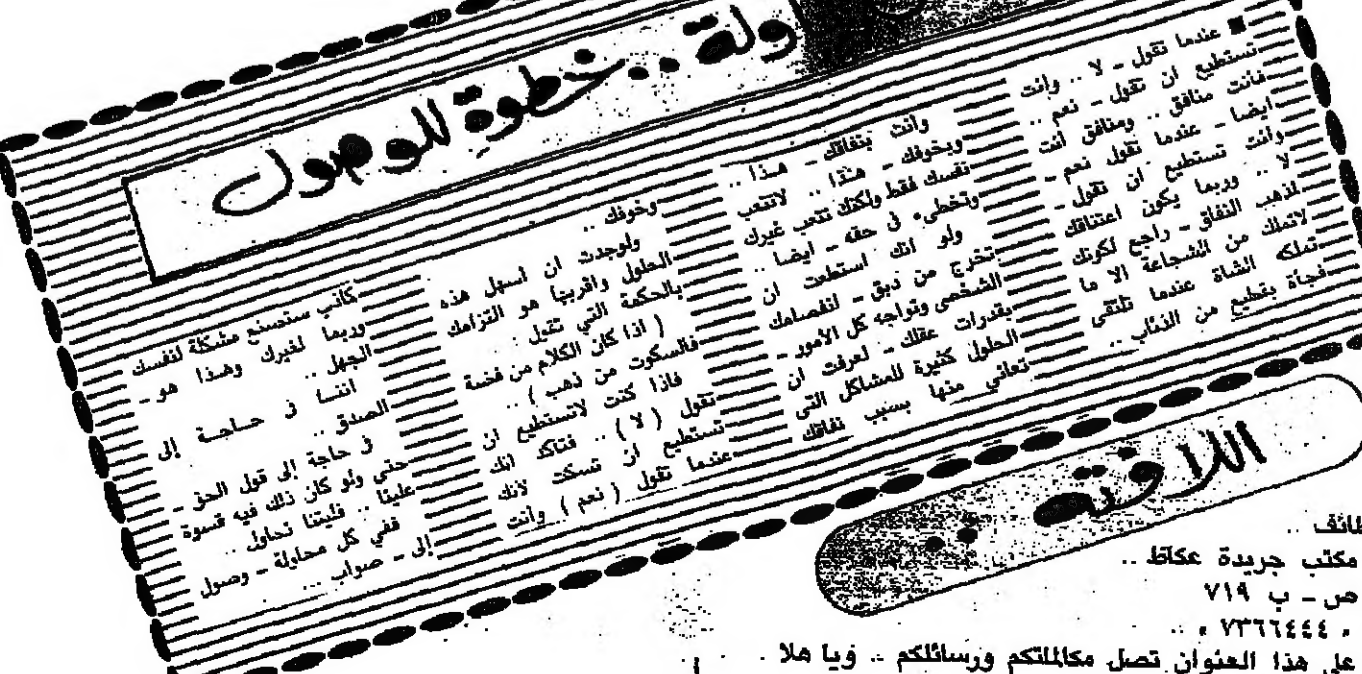 ولة .. خطوة للوصول
■ عندما تقول ـ لا .. وانت
تستطيع ان تقول ـ نعم ..
فأنت منافق .. ومنافق أنت
ايضا ـ عندما تقول نعم ـ
وأنت تستطيع ان تقول ـ
لا .. وربما يكون اعتناقك
لمذهب النفاق ـ راجع لكونك
لاتملك من الشجاعة الا ما
تملكه الشاة عندما تلتقى
فجأة بقطيع من الذئاب ..
وأنت بنفاقك ـ هذا ..
وبخوفك ـ هذا .. لاتتعب
نفسك فقط ولكنك تتعب غيرك
وتخطىء فى حقه ـ ايضا ..
ولو انك استطعت ان
تخرج من دبق ـ انفصامك
الشخصى وتواجه كل الأمور ـ
بقدرات عقلك ـ لعرفت ان
الحلول كثيرة للمشاكل التى
تعاني منها بسبب نفاقك
وخوفك ..
ولوجدت ان اسهل هذه
الحلول واقربها هو التزامك
بالحكمة التي تقول :
( اذا كان الكلام من فضة
فالسكوت من ذهب ) ..
فاذا كنت لاتستطيع ان
تقول ( لا ) .. فتأكد انك
تستطيع ان تسكت لانك
عندما تقول ( نعم ) وأنت
كأنى ستصنع مشكلة لنفسك
وربما لغيرك وهذا هو ـ
الجهل ..
اننا فى حاجة إلى
الصدق ..
فى حاجة إلى قول الحق ـ
حتى ولو كان ذلك فيه قسوة
علينا .. فليتنا نحاول ..
ففي كل محاولة ـ وصول
إلى ـ صواب ...
اللافتة ..
مكتب جريدة عكاظ ..
ص ـ ب ٧١٩
٧٣٦٦٤٤٤ ..
على هذا العنوان تصل مكالماتكم ورسائلكم .. ويا هلا .